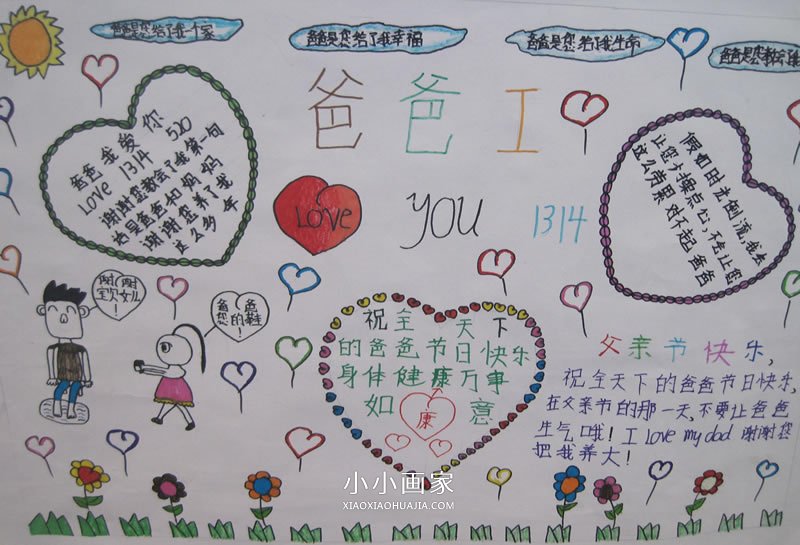 爸爸是您给了我一个家
爸爸是您给了我幸福
爸爸是您给了我生命
爸爸是您教会了我
爸爸 I
LOVE YOU 1314
爸爸我爱你
LOVE 1314 520
谢谢您教会了我第一句
话是爸爸和妈妈
谢谢您养了我
这么多年
假如时光倒流,我会
让您少操点心,不会让您
这么劳累 对不起 爸爸
谢谢
宝贝女儿!
爸爸
您的鞋
!
祝全天下
的爸爸节日快乐
身体健康万事
如 意
康
父亲节快乐,
祝全天下的爸爸节日快乐,
在父亲节的那一天,不要让爸爸
生气哦!I love my dad 谢谢您
把我养大!
小小画家
XIAOXIAOHUAJIA.COM